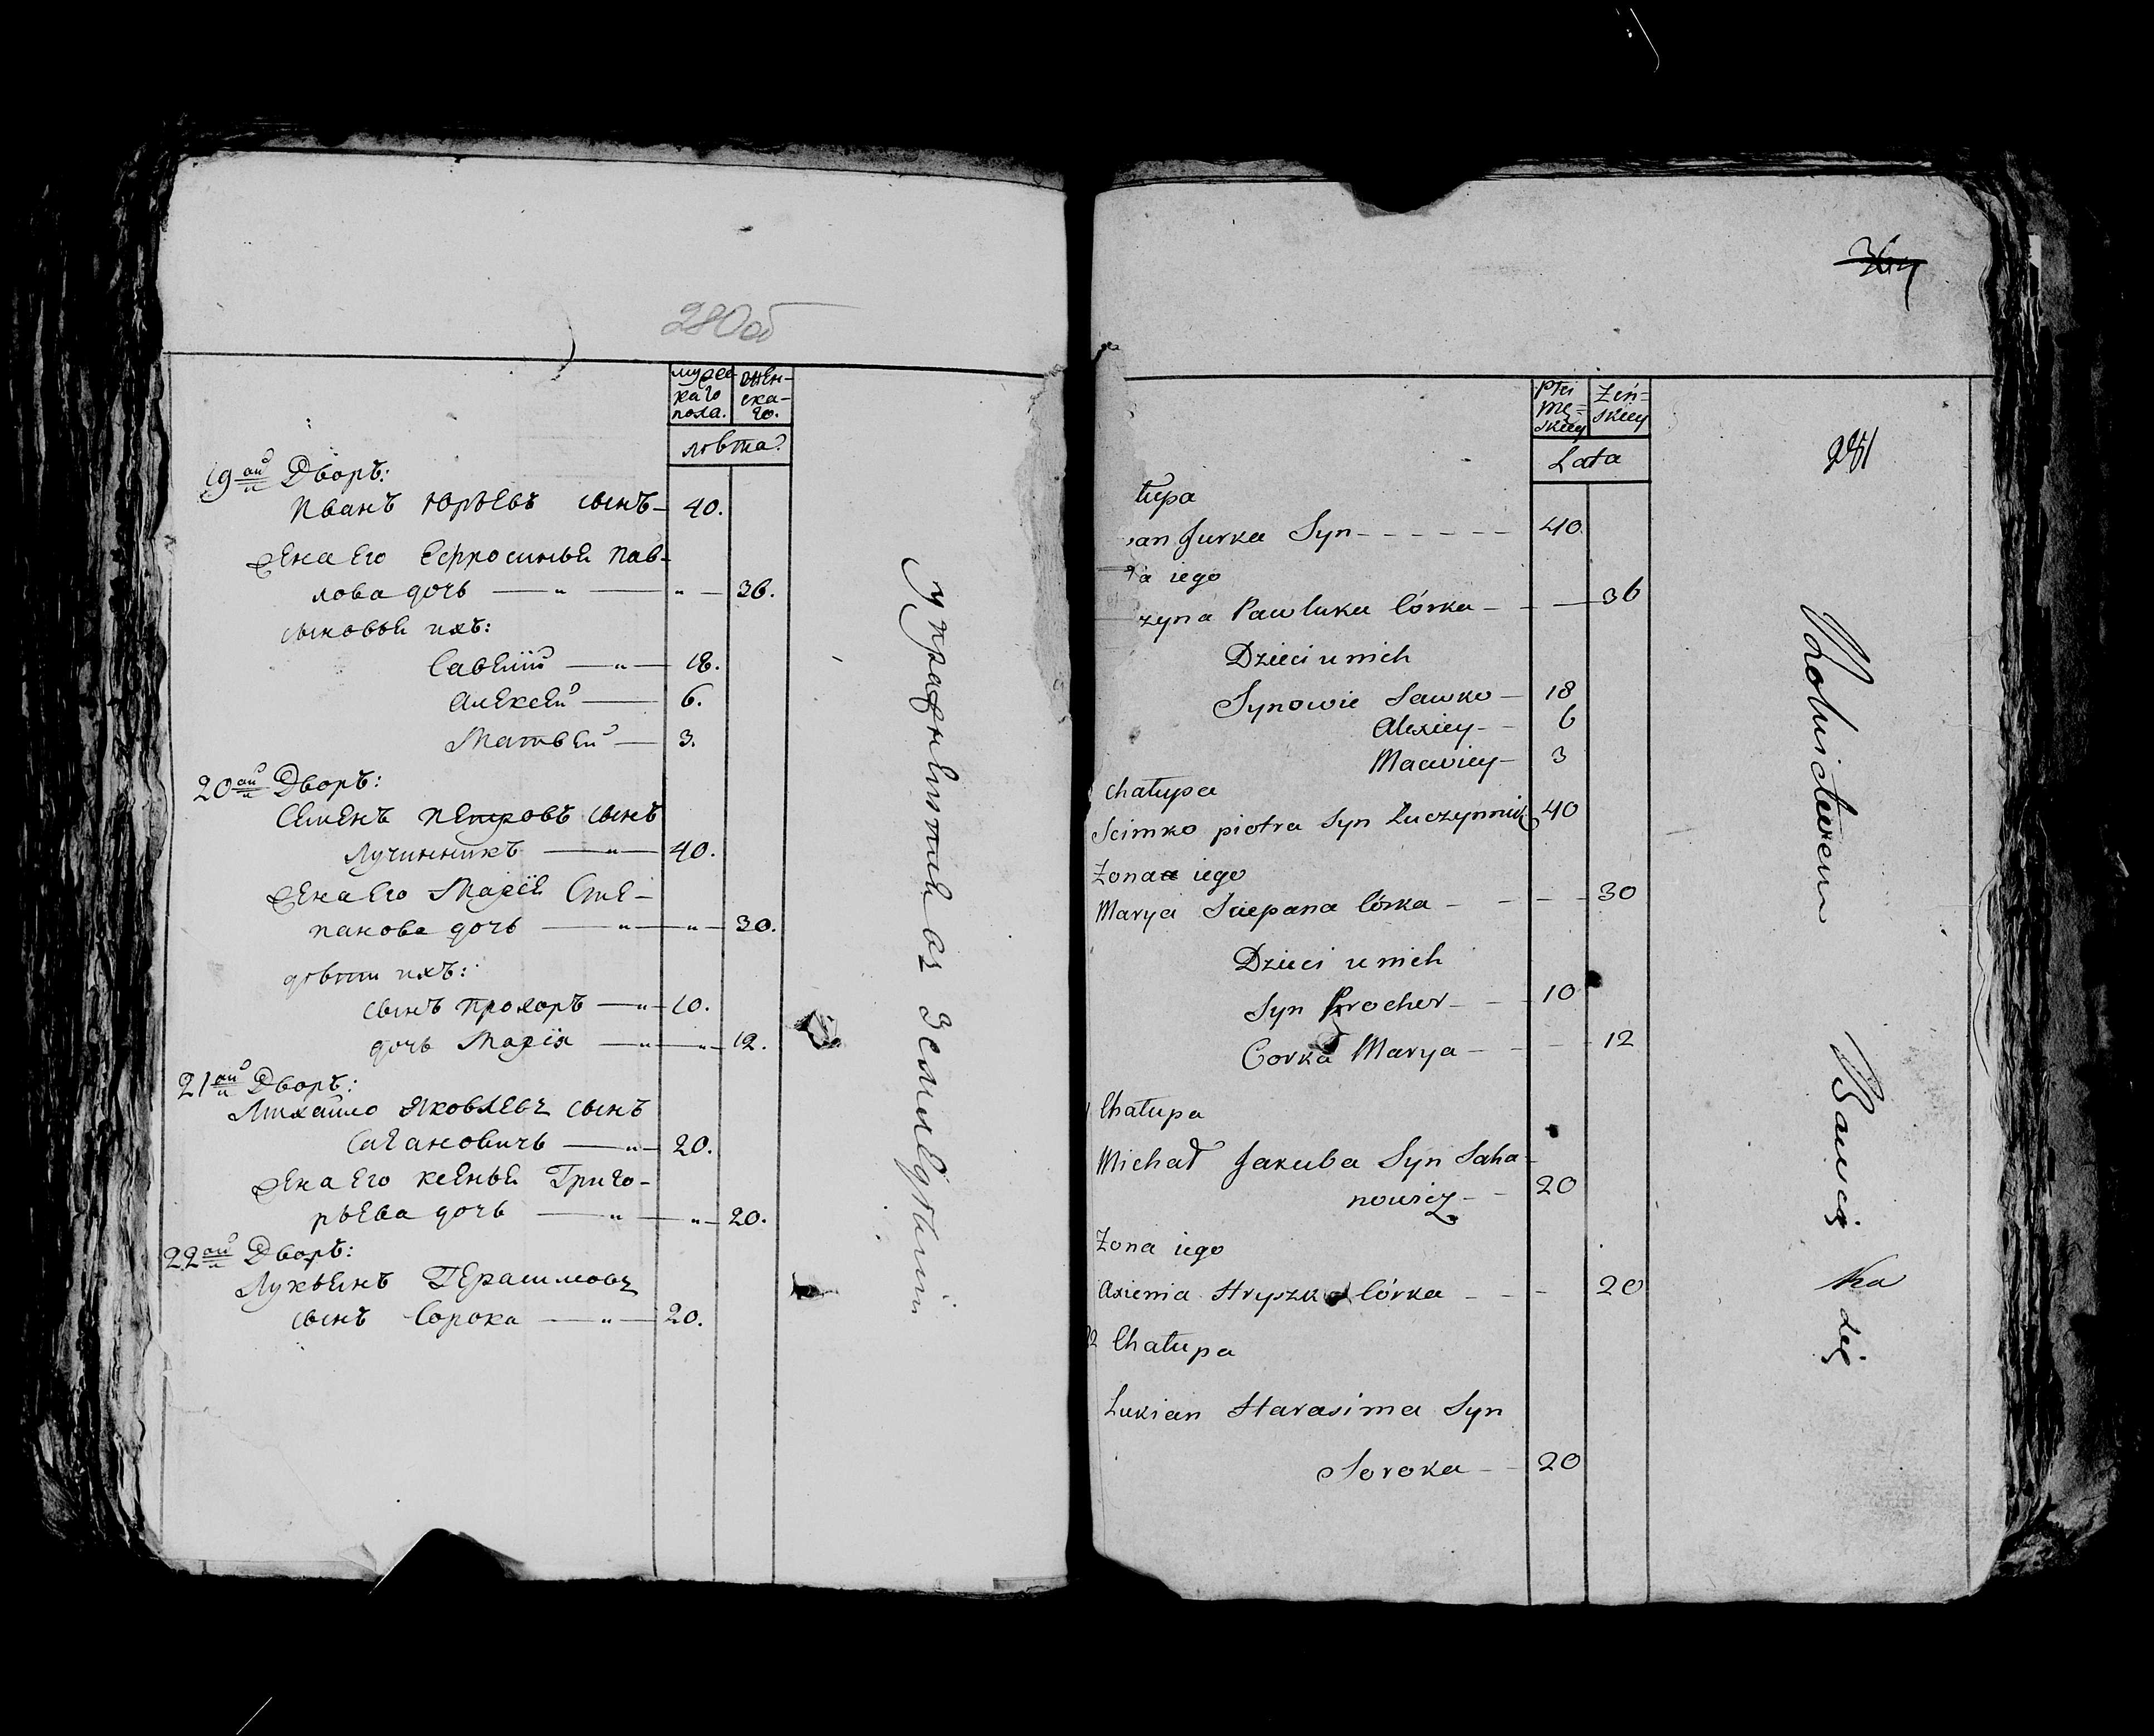 280об
мужес-
каго
пола.
жен-
ска-
го.
лѣта
19ай Дворъ:
Иванъ Юрьевъ сынъ — 40.
Жена Его Ефросинья Пав-
лова дочь — „ — „ — 36.
сыновья ихъ:
Савелій — „ — 18.
Алексей — 6.
Матвей — 3.
20ай Дворъ:
Семенъ Петровъ сынъ
Лучинникъ — „ — 40.
Жена Его Марія Сте-
панова дочь — „ — „ — 30.
дѣти ихъ:
сынъ Прохоръ — „ — 10.
дочь Марія — „ — „ — 12.
21ай Дворъ:
Михайло Яковлевъ сынъ
Сагановичъ — „ — 20.
Жена Его Ксенья Григо-
рьева дочь — „ — „ — 20.
22ай Дворъ:
Лукьянъ Герасимовъ
сынъ Сорока — „ — 20.
упражняются въ Земледѣліи
281
Płci
Mę=
skiey
Żeń=
skiey
Lata
łupa
an Jurka Syn - - - - - - 40
a iego
zyna Pawluka Córka - - - 36
Dzieci u nich
Synowie Sawko - 18
Alexiey - 6
Maciey - 3
Chałupa
Siemko piotra Syn Łuczynnik 40
Zona iego
Marya Sciepana Córka - - - - 30
Dzieci u nich
Syn Procher - - - 10
Corka Marya - - - - 12
Chałupa
Michał Jakuba Syn Saha-
nowicz - - 20
Zona iego
Axienia Hryszka Córka - - - 20
22 Chałupa
Lukian Harasima Syn
Soroka - - 20
Rolnictwem Bawią się